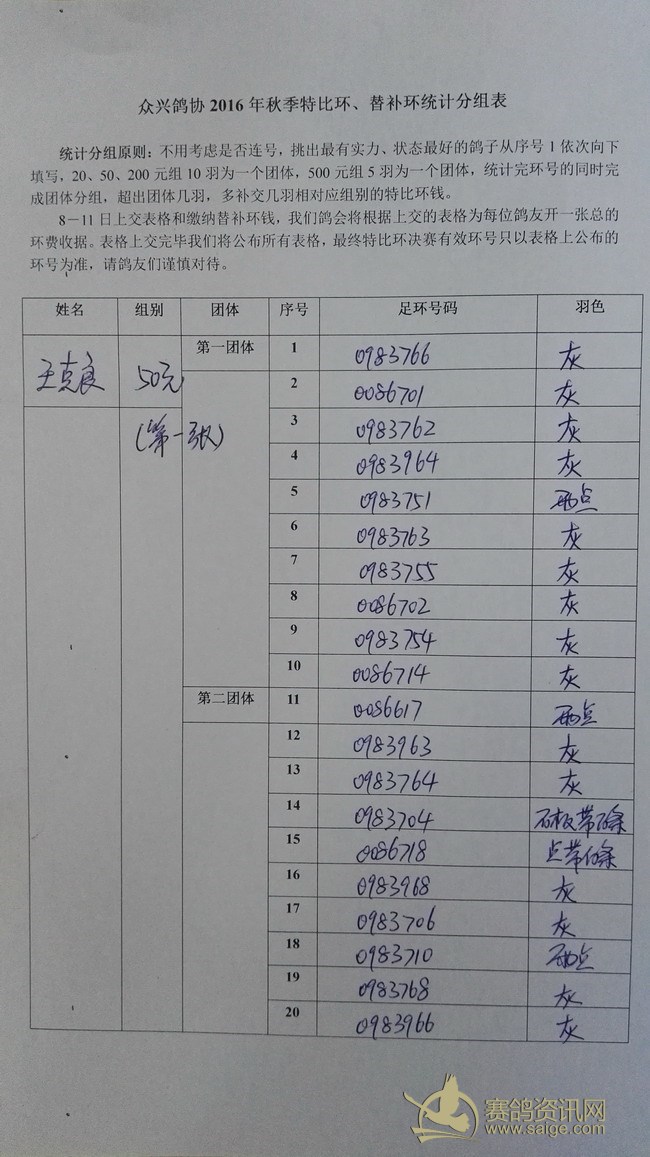 众兴鸽协 2016 年秋季特比环、替补环统计分组表
统计分组原则：不用考虑是否连号，挑出最有实力、状态最好的鸽子从序号 1 依次向下
填写，20、50、200 元组 10 羽为一个团体，500 元组 5 羽为一个团体，统计完环号的同时完
成团体分组，超出团体几羽，多补交几羽相对应组别的特比环钱。
8－11 日上交表格和缴纳替补环钱，我们鸽会将根据上交的表格为每位鸽友开一张总的
环费收据。表格上交完毕我们将公布所有表格，最终特比环决赛有效环号只以表格上公布的
环号为准，请鸽友们谨慎对待。
姓名 组别 团体 序号 足环号码 羽色
王克良 50元 第一团体 1 0983766 灰
(第一张) 2 0086701 灰
3 0983762 灰
4 0983964 灰
5 0983751 雨点
6 0983763 灰
7 0983755 灰
8 0086702 灰
9 0983754 灰
10 0086714 灰
第二团体 11 0086617 雨点
12 0983963 灰
13 0983764 灰
14 0983704 石板带条
15 0086718 点带条
16 0983968 灰
17 0983706 灰
18 0983710 雨点
19 0983768 灰
20 0983966 灰
赛鸽资讯网
www.saige.com